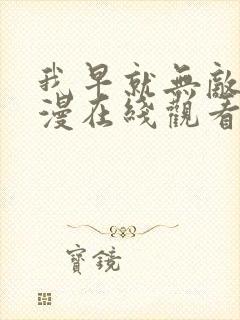 我早就無敵
漫在綫觀看
寶鏡